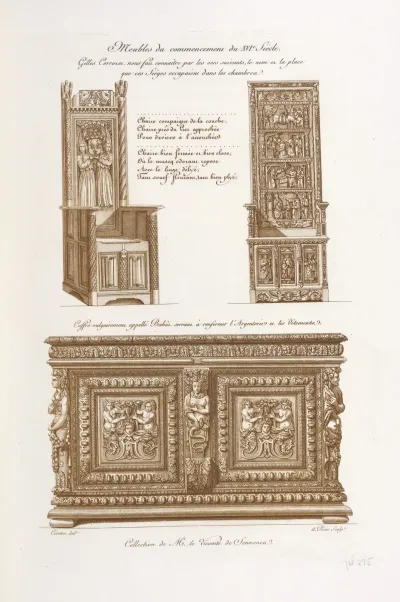 Meubles du commencement du XVIe Siècle.
Gilles Corrozet, nous fait connaître par les vers suivants, le nom et la place
que ces Sièges occupaient dans les chambres.
Chaire compaigne de la couche,
Chaire près du lict approchée
Pour deviser à l'acouchée
Chaire bien fermée et bien close,
Où le muscq odorant repose
Avec le linge délyé,
Tant souef fleurant, tant bien plyé.
Coffre vulgairement appellé Bahut, servant à renfermer l'Argenterie et les Vêtements.
del.t
Sculp.t
Collection de Mr. le Vicomte de Sennones